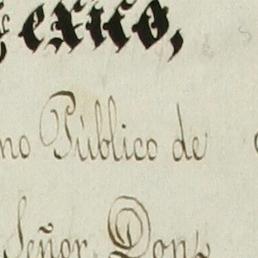 éxico,
no Público de
Señor Don